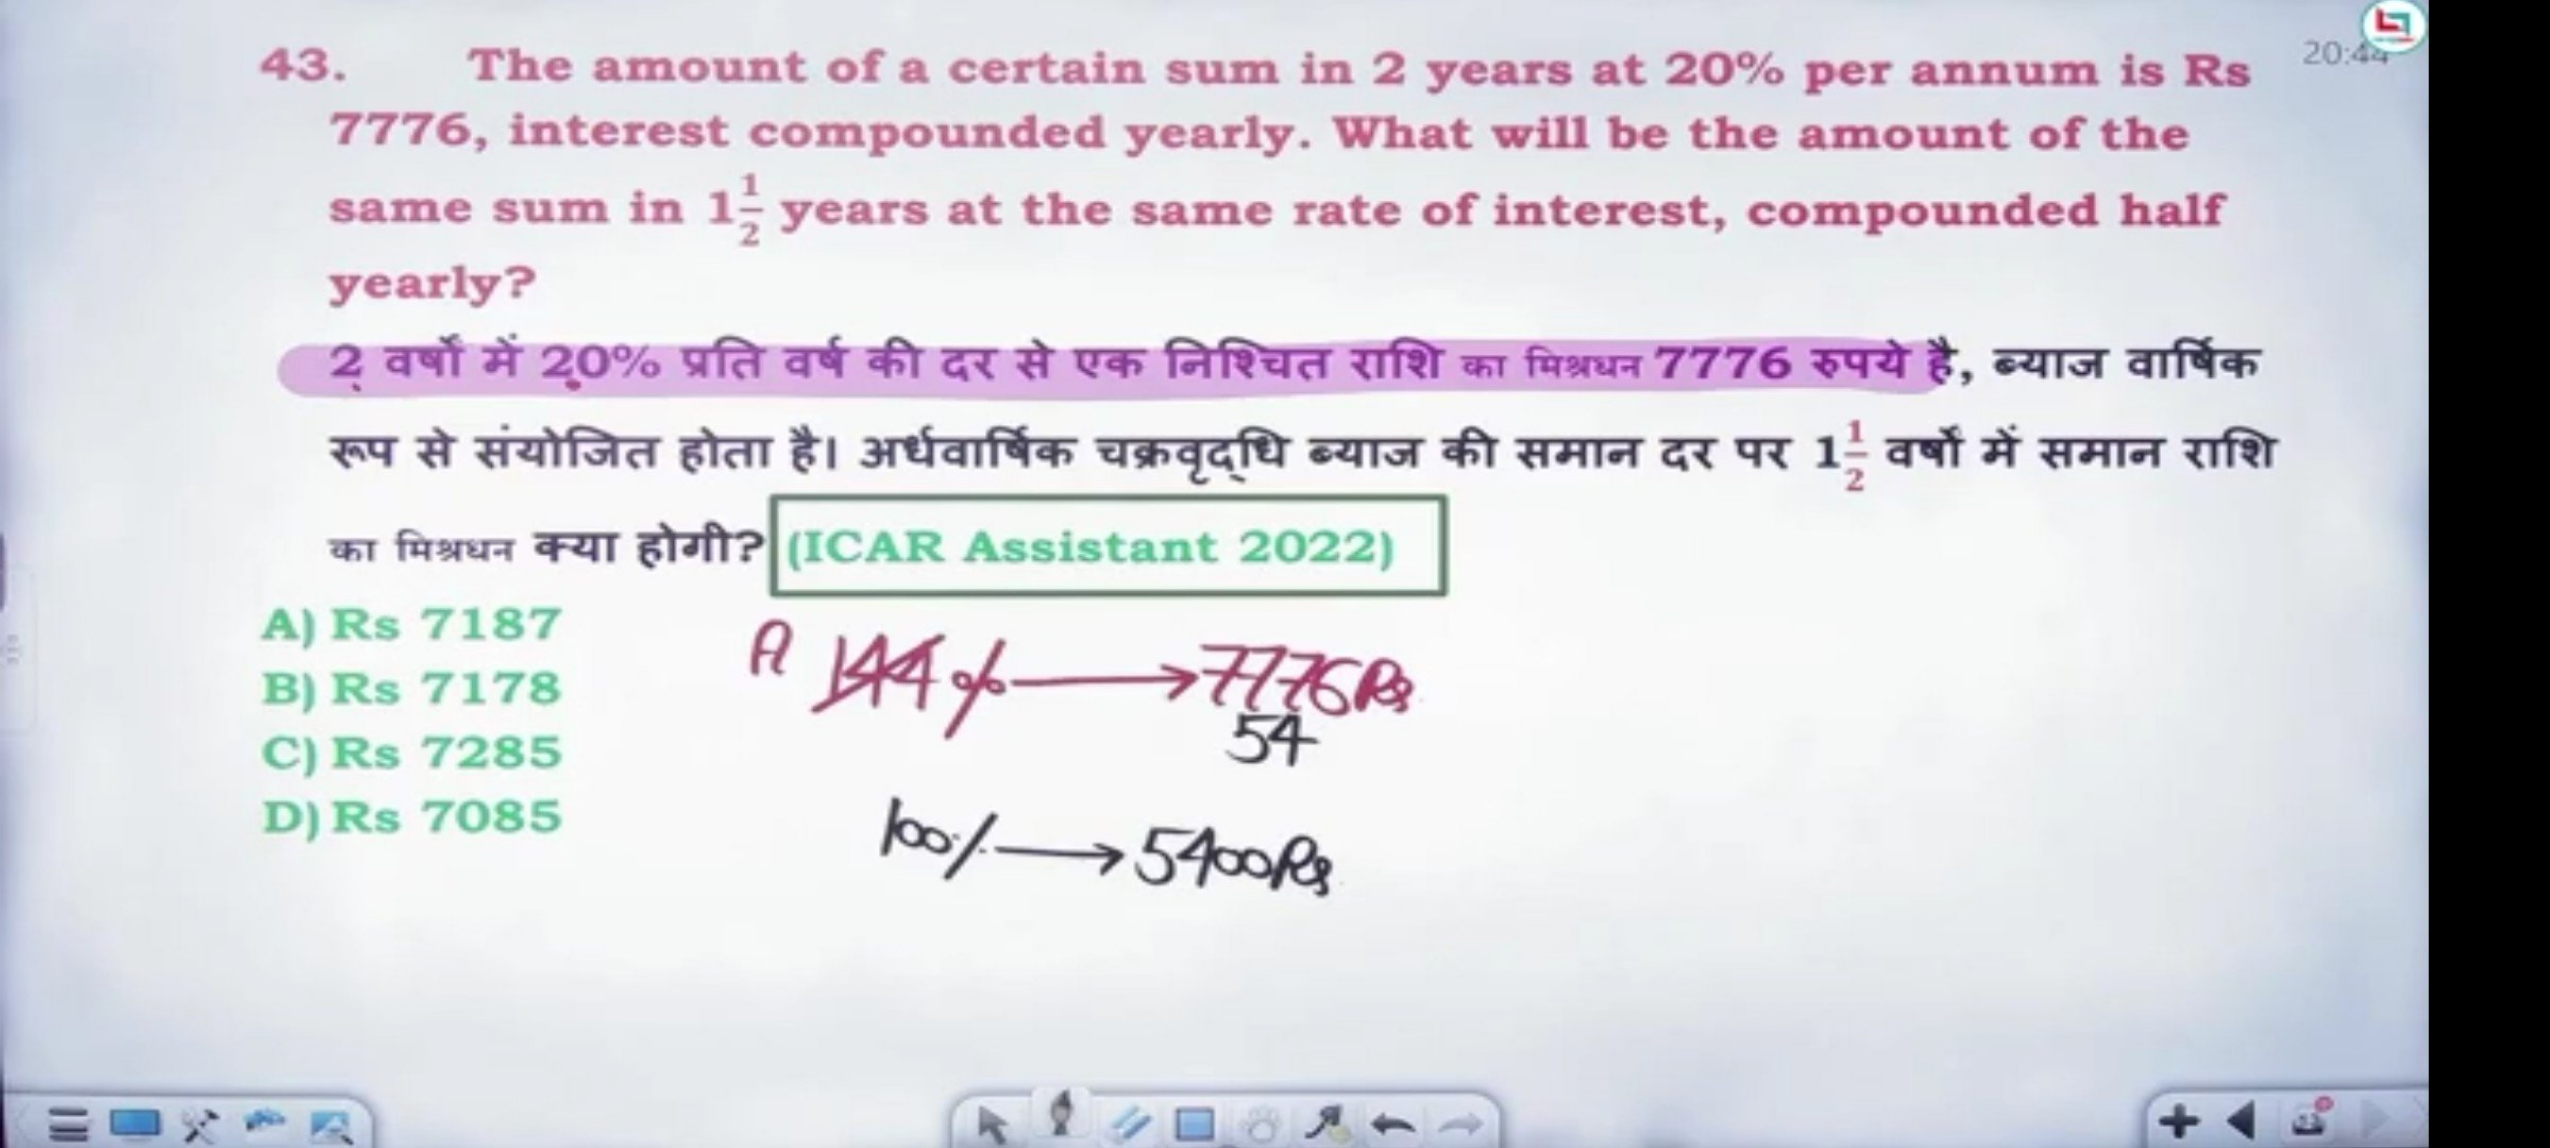 20:44
43. The amount of a certain sum in 2 years at 20% per annum is Rs
7776, interest compounded yearly. What will be the amount of the
same sum in 1 1/2 years at the same rate of interest, compounded half
yearly?
2 वर्षों में 20% प्रति वर्ष की दर से एक निश्चित राशि का मिश्रधन 7776 रुपये है, ब्याज वार्षिक
रूप से संयोजित होता है। अर्धवार्षिक चक्रवृद्धि ब्याज की समान दर पर 1 1/2 वर्षों में समान राशि
का मिश्रधन क्या होगी? (ICAR Assistant 2022)
A) Rs 7187
B) Rs 7178
C) Rs 7285
D) Rs 7085
A 144% → 7776 Rs
54
100% → 5400 Rs